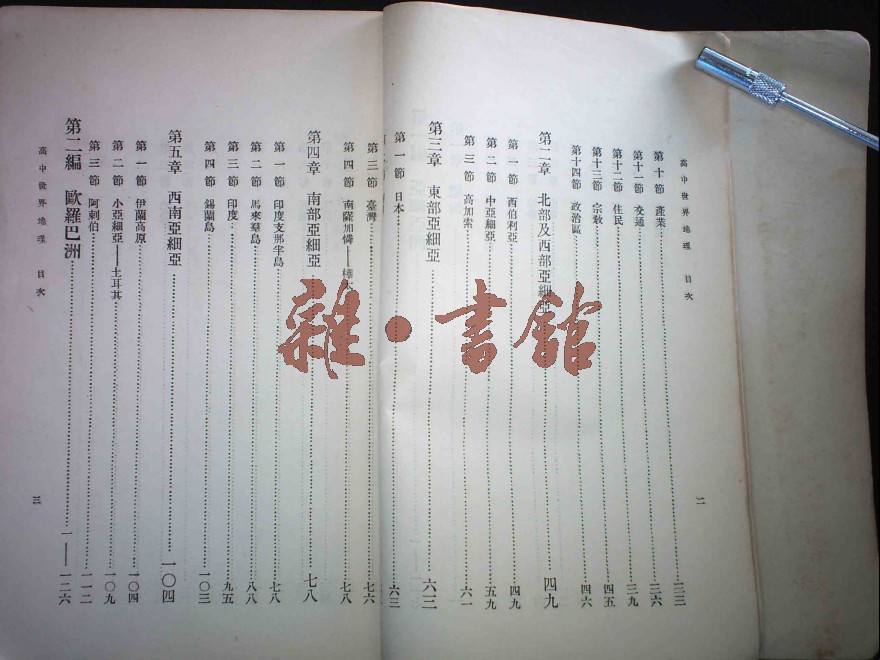 高中世界地理 目次
二
第十節 產業……三三
第十一節 交通……三六
第十二節 住民……三九
第十三節 宗敎……四五
第十四節 政治區……四六
第二章 北部及西部亞細亞……四九
第一節 西伯利亞……四九
第二節 中亞細亞……五九
第三節 高加索……六一
第三章 東部亞細亞……六三
第一節 日本……六三
第三節 臺灣……七六
第四節 南薩加憐——樺太……七八
第四章 南部亞細亞……七八
第一節 印度支那半島……七八
第二節 馬來羣島……八八
第三節 印度……九五
第四節 錫蘭島……一〇三
第五章 西南亞細亞……一〇四
第一節 伊蘭高原……一〇四
第二節 小亞細亞——土耳其……一〇九
第三節 阿剌伯……一一二
第二編 歐羅巴洲……一——一二六
高中世界地理 目次
三
雜·書館